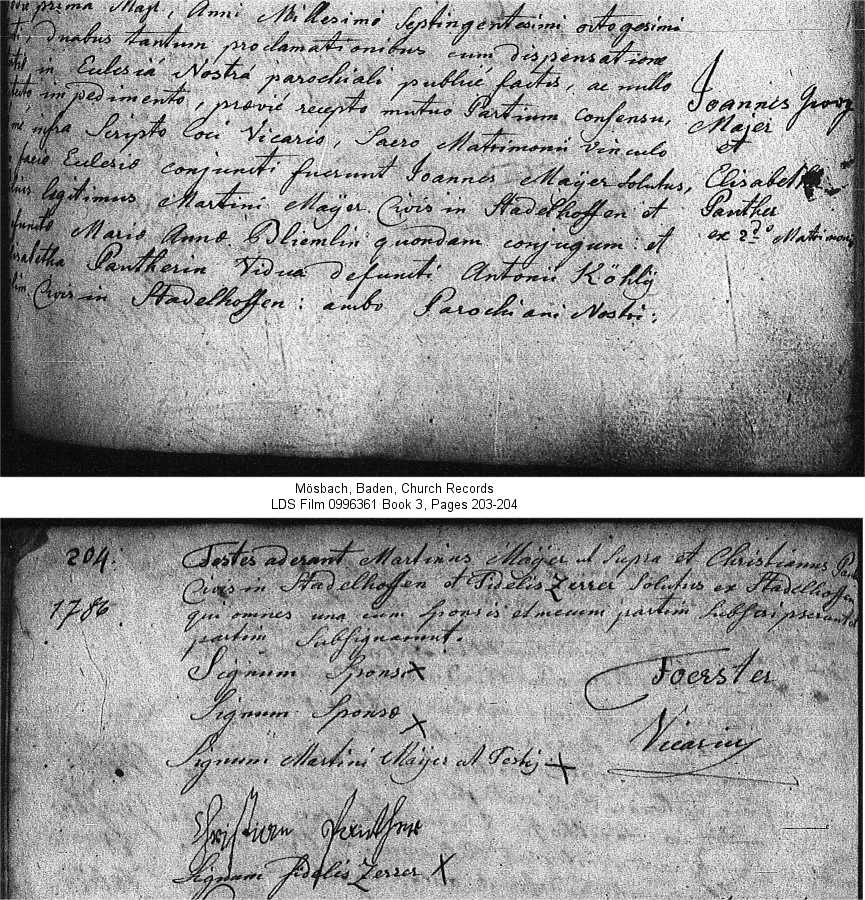 prima Maji, Anni Millesimi Septingentesimi octogesimi
duabus tantum proclamationibus cum dispensatione
in Eclesiâ Nostrâ parochiali publicé factis, ac nullo
impedimento, prævié recepto mutuo Partium Consensu,
infra Scripto loci Vicario, Sacro Matrimonii vinculo
facie Eclesiæ conjuncti fuerunt Joannes Maÿer Solutus,
legitimus Martini Maÿer Civis in Stadelhoffen et
Mariæ Annæ Bliemlin quondam conjugum: et
Pantherin Vidua defuncti Antonii Köhlÿ
Civis in Stadelhoffen: ambo Parochiani Nostri:
Joannes
Majer
et
Elisabetha
Panther
ex 2do Matrimonio
Mösbach, Baden, Church Records
LDS Film 0996361 Book 3, Pages 203-204
204.
1786.
Testes aderant Martinus Maÿer ut Supra et Christianus
Civis in Stadelhoffen et Fidelis Zerrer Solutus ex Stadelhoffen
qui omnes una cum Sponsis et mecum partim Subscripserunt
partim Subsignarunt.
Signum Sponsi X
Signum Sponsæ X
Signum Martini Maÿer ut Testis X
Foerster
Vicarius
Christian Panther
Signum Fidelis Zerrer X